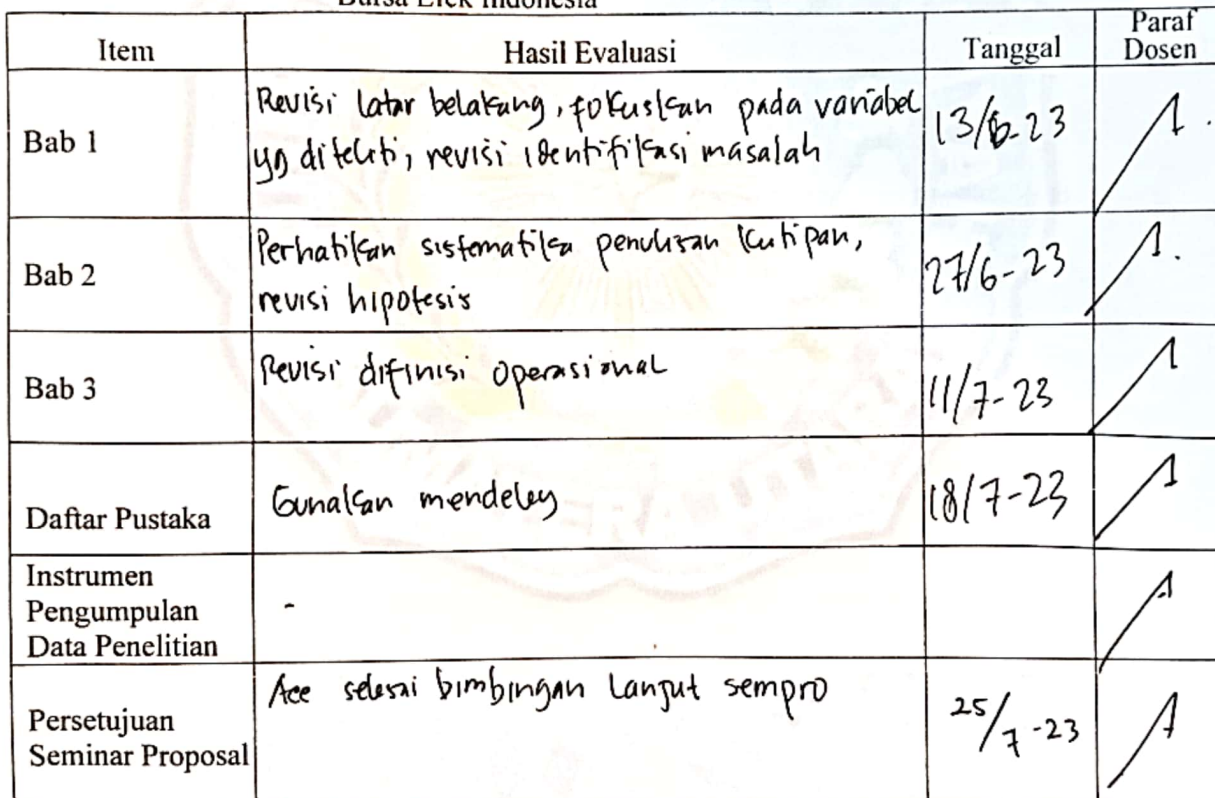 Bursa Efek Indonesia
Item Hasil Evaluasi Tanggal Paraf
Dosen
Bab 1
Revisi latar belakang, fokuskan pada variabel
yg diteliti, revisi identifikasi masalah
13/6-23
Bab 2
Perhatikan sistematika penulisan kutipan,
revisi hipotesis
27/6-23
Bab 3
Revisi difinisi operasional
11/7-23
Daftar Pustaka
Gunakan mendeley
18/7-23
Instrumen
Pengumpulan
Data Penelitian
-
Persetujuan
Seminar Proposal
Acc selesai bimbingan lanjut sempro
25/7-23